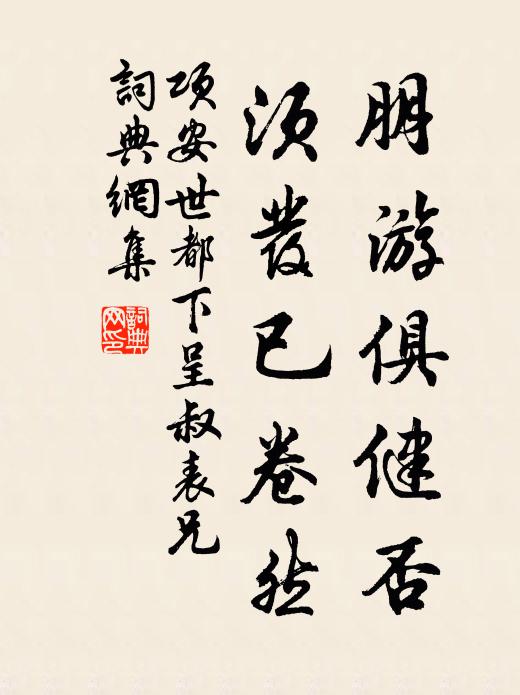 朋游俱健否
须发已卷然
项安世都下呈叔表兄
詞典網集
詞典网印